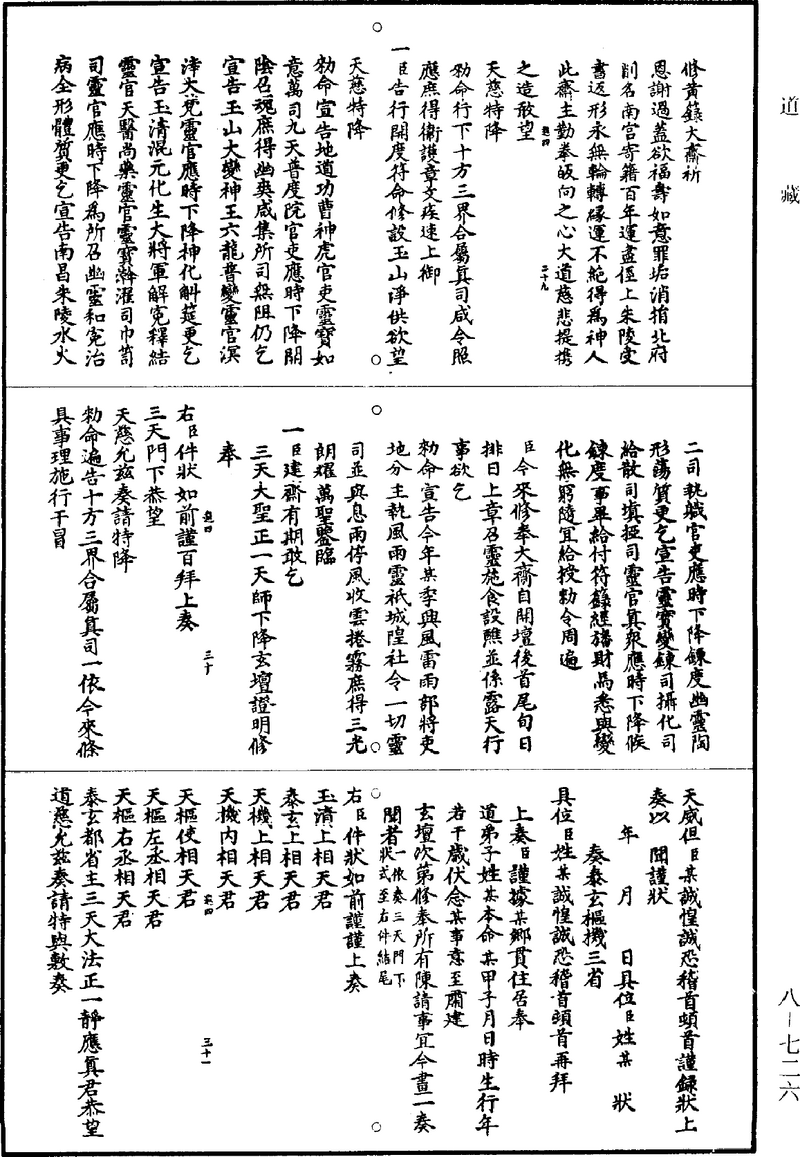 道藏
八-七二六
修黃籙大齋祈
恩謝過蓋欲福壽如意罪垢消損北府
削名南宮寄籍百年運盡徑上朱陵受
書返形永無輪轉緣運不絶得為神人
此齋主勤拳皈向之心大道慈悲提攜
之造敢望
天慈特降
勑命行下十方三界合屬真司咸令照
應庶得衛護章文疾速上御
一臣告行開度符命修設玉山淨供欲望
天慈特降
勑命宣告地道功曹神虎官吏靈寶如
意萬司九天普度院官吏應時下降開
陰召魂庶得幽爽咸集所司無阻仍乞
宣告玉山大變神王六龍普變靈官溟
涬大梵靈官應時下降神化斛筵更乞
宣告玉清混元化生大將軍解冤釋結
靈官天醫尚藥靈官靈寶澣濯司巾笥
司靈官應時下降為所召幽靈和冤治
病全形體質更乞宣告南昌朱陵水火
二司執職官吏應時下降鍊度幽靈陶
形蕩質更乞宣告靈寶變鍊司攝化司
給散司填掗司靈官真衆應時下降候
鍊度事畢給付符籙經旛財馬悉與變
化無窮隨宜給授勑令周遍
臣今來修奉大齋自開壇後首尾旬日
排日上章召靈施食設醮並係露天行
事欲乞
勑命宣告今年某季興風雷雨部將吏
地分主執風雨靈祇城隍社令一切靈
司並與息雨停風收雲捲霧庶得三光
朗耀萬聖鑒臨
一臣建齋有期敢乞
三天大聖正一天師下降玄壇證明修
奉
右臣件狀如前謹百拜上奏
三天門下恭望
天慈允兹奏請特降
勑命遍告十方三界合屬真司一依今來條
具事理施行干冒
天威但臣某誠惶誠恐稽首頓首謹錄狀上
奏以聞謹狀
年月日具位臣姓某狀
奏泰玄樞機三省
具位臣姓某誠惶誠恐稽首頓首再拜
上奏臣謹據某鄉貫住居奉
道弟子姓某本命某甲子月日時生行年
若干歲伏念某事意至肅建
玄壇次第修奉所有陳請事宜今畫一奏
聞者一依奏三天門下狀式至右件結尾
右臣件狀如前謹謹上奏
玉清上相天君
泰玄上相天君
天機上相天君
天機內相天君
天樞使相天君
天樞左丞相天君
天樞右丞相天君
泰玄都省主三天大法正一靜應真君恭望
道慈允兹奏請特與敷奏
三十
三十一